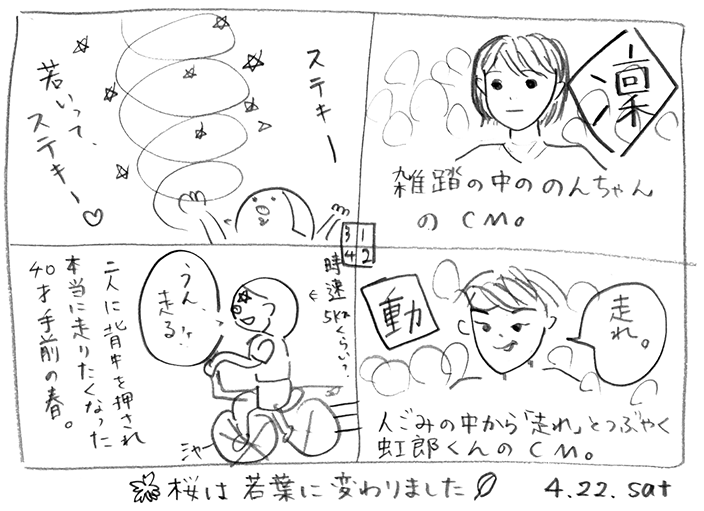 凜
雑踏の中ののんちゃん
のCM。
動
走れ。
人ごみの中から「走れ」とつぶやく
虹郎くんのCM。
ステキー
若いって、
ステキー♡
3 1
4 2
時速
5kmくらい?
うん、
走る!!
ニャー
二人に背中を押され
本当に走りたくなった
40才手前の春。
桜は若葉に変わりました
4.22. sat